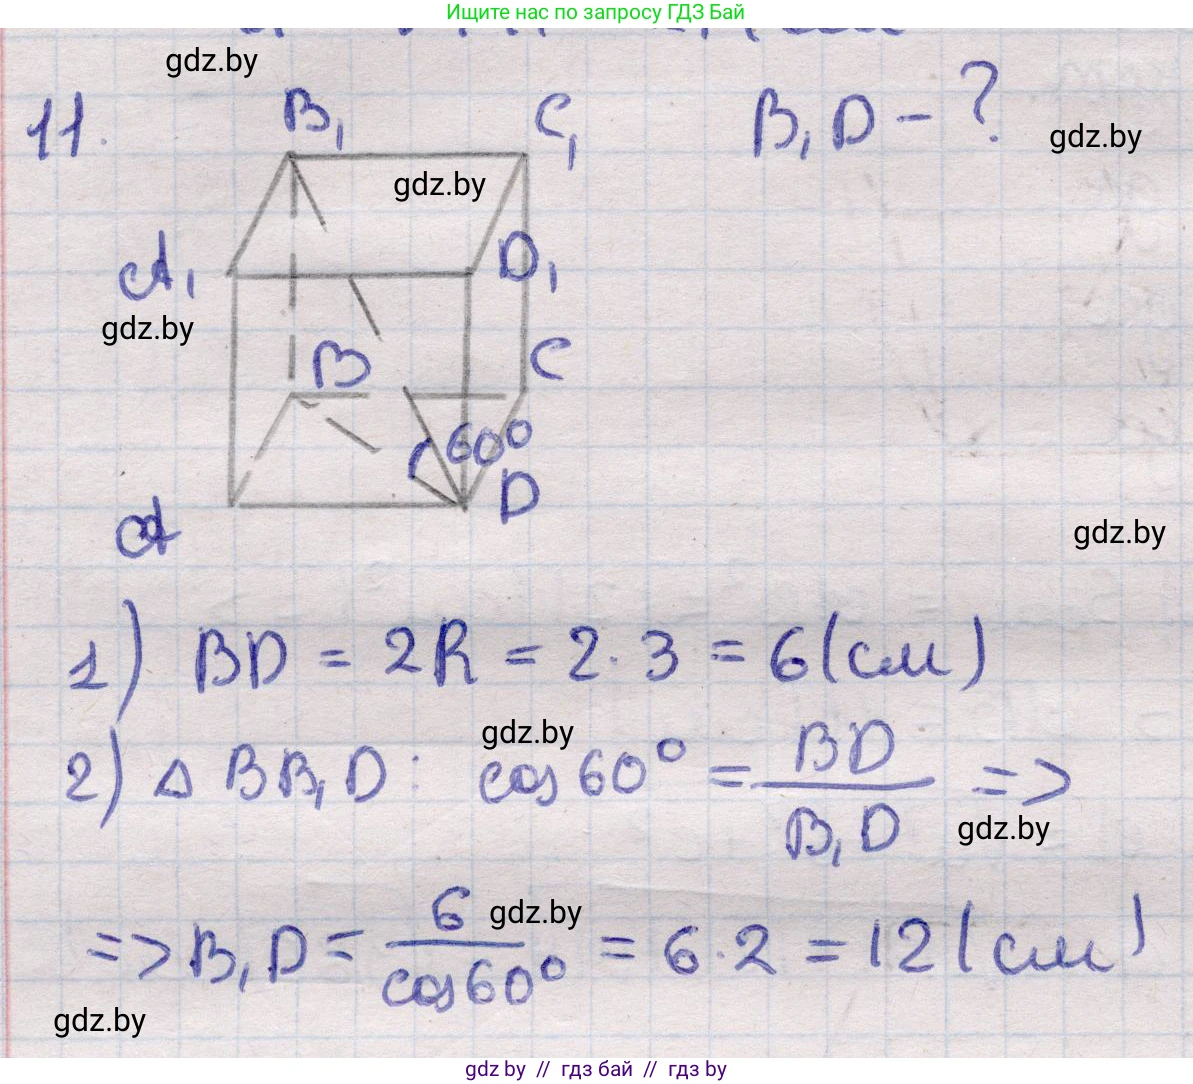 Ищите нас по запросу ГДЗ Бай
gdz.by
11.
B₁
C₁
B₁D - ?
gdz.by
gdz.by
A₁
D₁
gdz.by
B
C
60°
D
A
gdz.by
1) BD = 2R = 2·3 = 6(см)
gdz.by
2) △ BB₁D: cos60° = BD/B₁D =>
gdz.by
gdz.by
=> B₁D = 6/cos60° = 6·2 = 12(см)
gdz.by
gdz by // гдз бай // gdz by